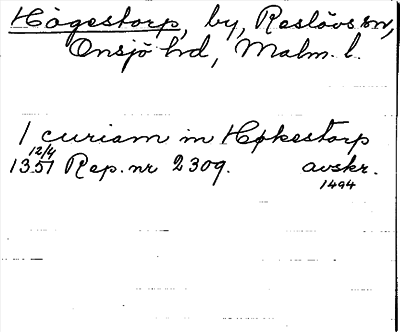 Högestorp, by, Reslövs sn,
Onsjö hd, Malm. l.
1 curiam in Høkestorp
12/4
1351 Rep. nr 2309. avskr.
1494